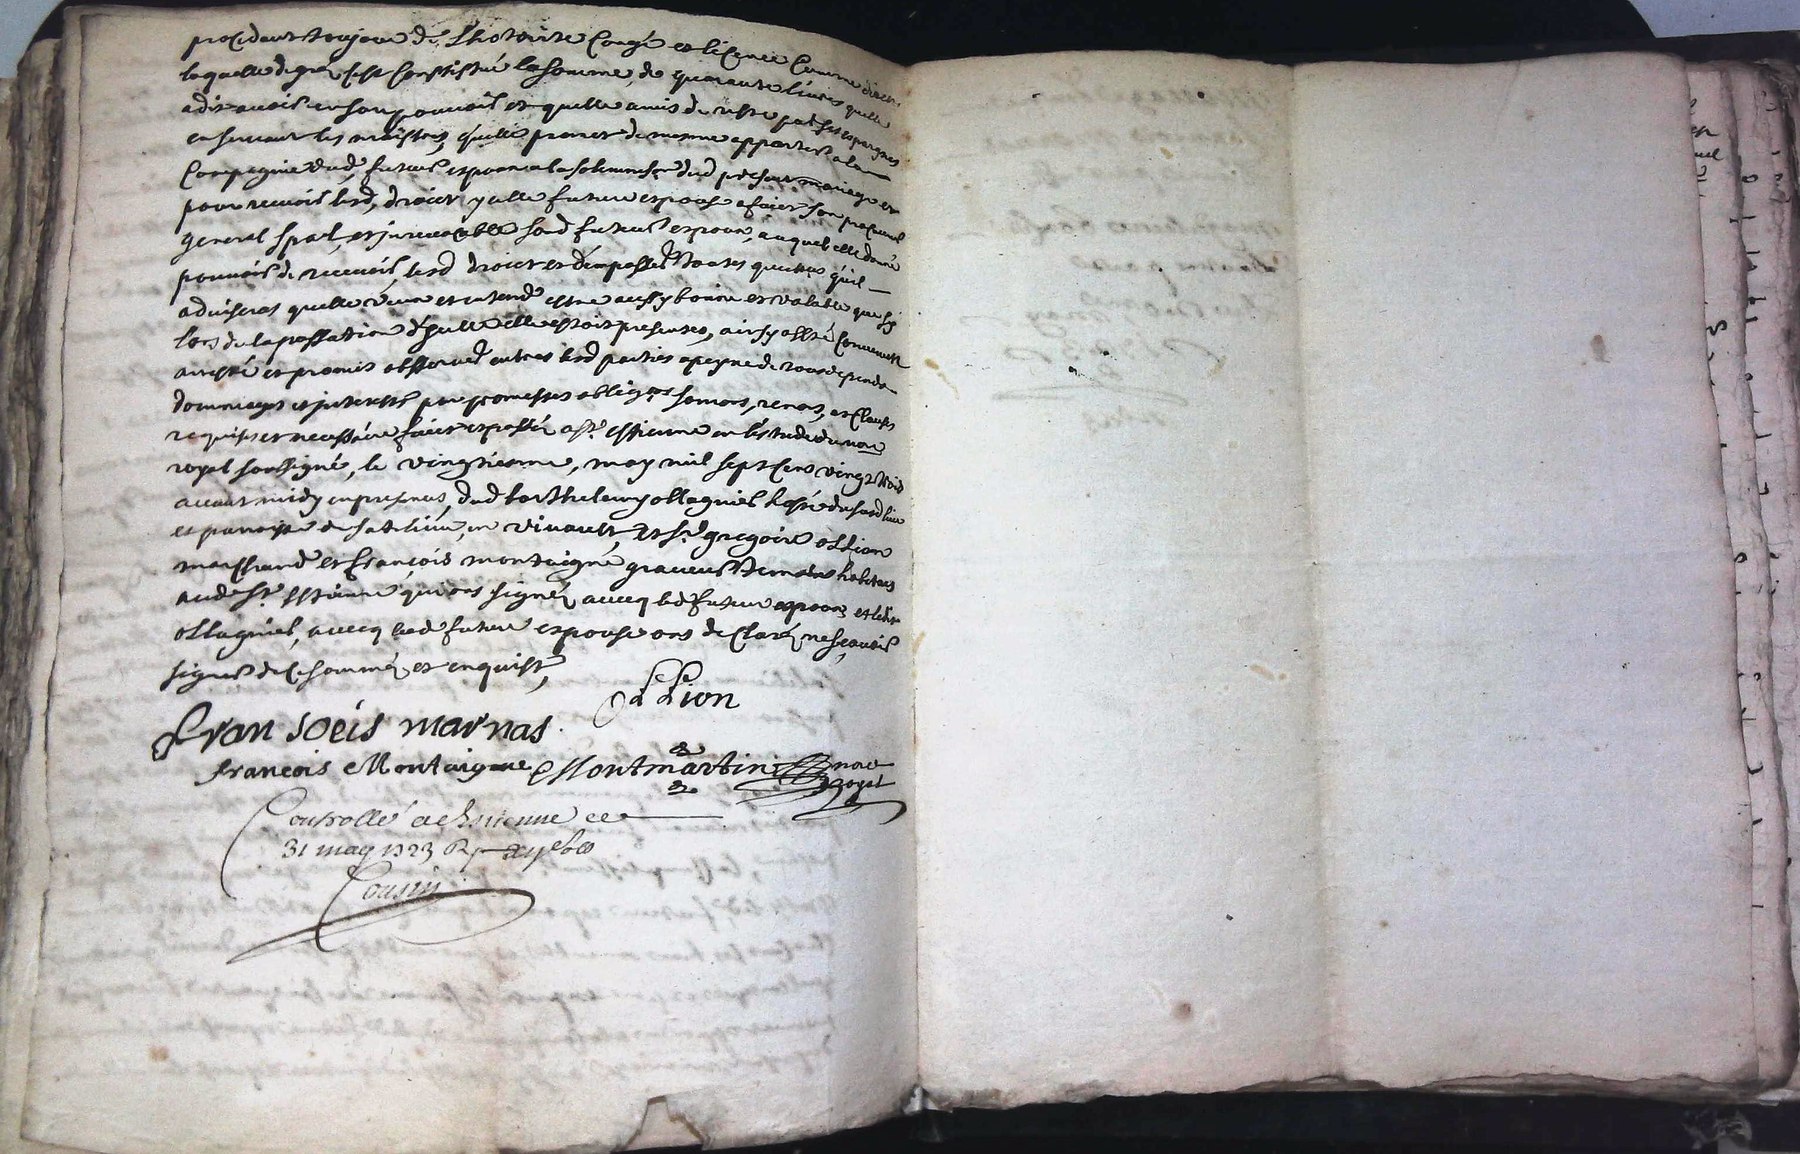 procedant toujour de l'hotorite Congé et licence Comme dit est
laquelle de gré sest Constitué la somme de quarante livres quelle
a dit avoir en son pouvoir et quelle a mis de reste par ses espargnes
en servant les maistres, quelle promet de mesme apporter a la
Compagnie dud futur espoux a la solemnison dud present mariage et
pour recevoir lesd, droict ycelle future espouse a faict son procureur
general spāl, et irrevocable sond futur espoux, auquel elle donne
pouvoir de recevoir, lesd droict et d'en passer toutes quittces qu'il
advisera, quelle veux et entend estre aussy bonne et valable que sy
lors de la passation d'ycelle elle estoit presentes, ainsy a esté Convenu
arresté et promis observer entre lesd parties a peyne de tous despends
dommages et interests par promesses obligons somons, renons, et Clauses
requises et necessaire faict et passé, a St. estienne en l'estude du nore
royal soussigné, le vingtienne, may mil sept cens vingt trois
avant midy en presences, dud barthelemy ollagnier hoste du sond lieu
et parroisse de satilieu, en vivarest, et Sr. gregoire ossion
marchand et françois montaigne graveur temoins habitans
aud St. estienne qui ont signé, avecq led futur espoux et ledit
ollagnier, avecq lad future espouse ont declaré ne scavoir
signer de Ce sommé et enquist,
ossion
fransoeis marnas.
francois Montaigne Montmartin nore
royal
Controllé a St Estienne ce
31 may 1723
Cousin